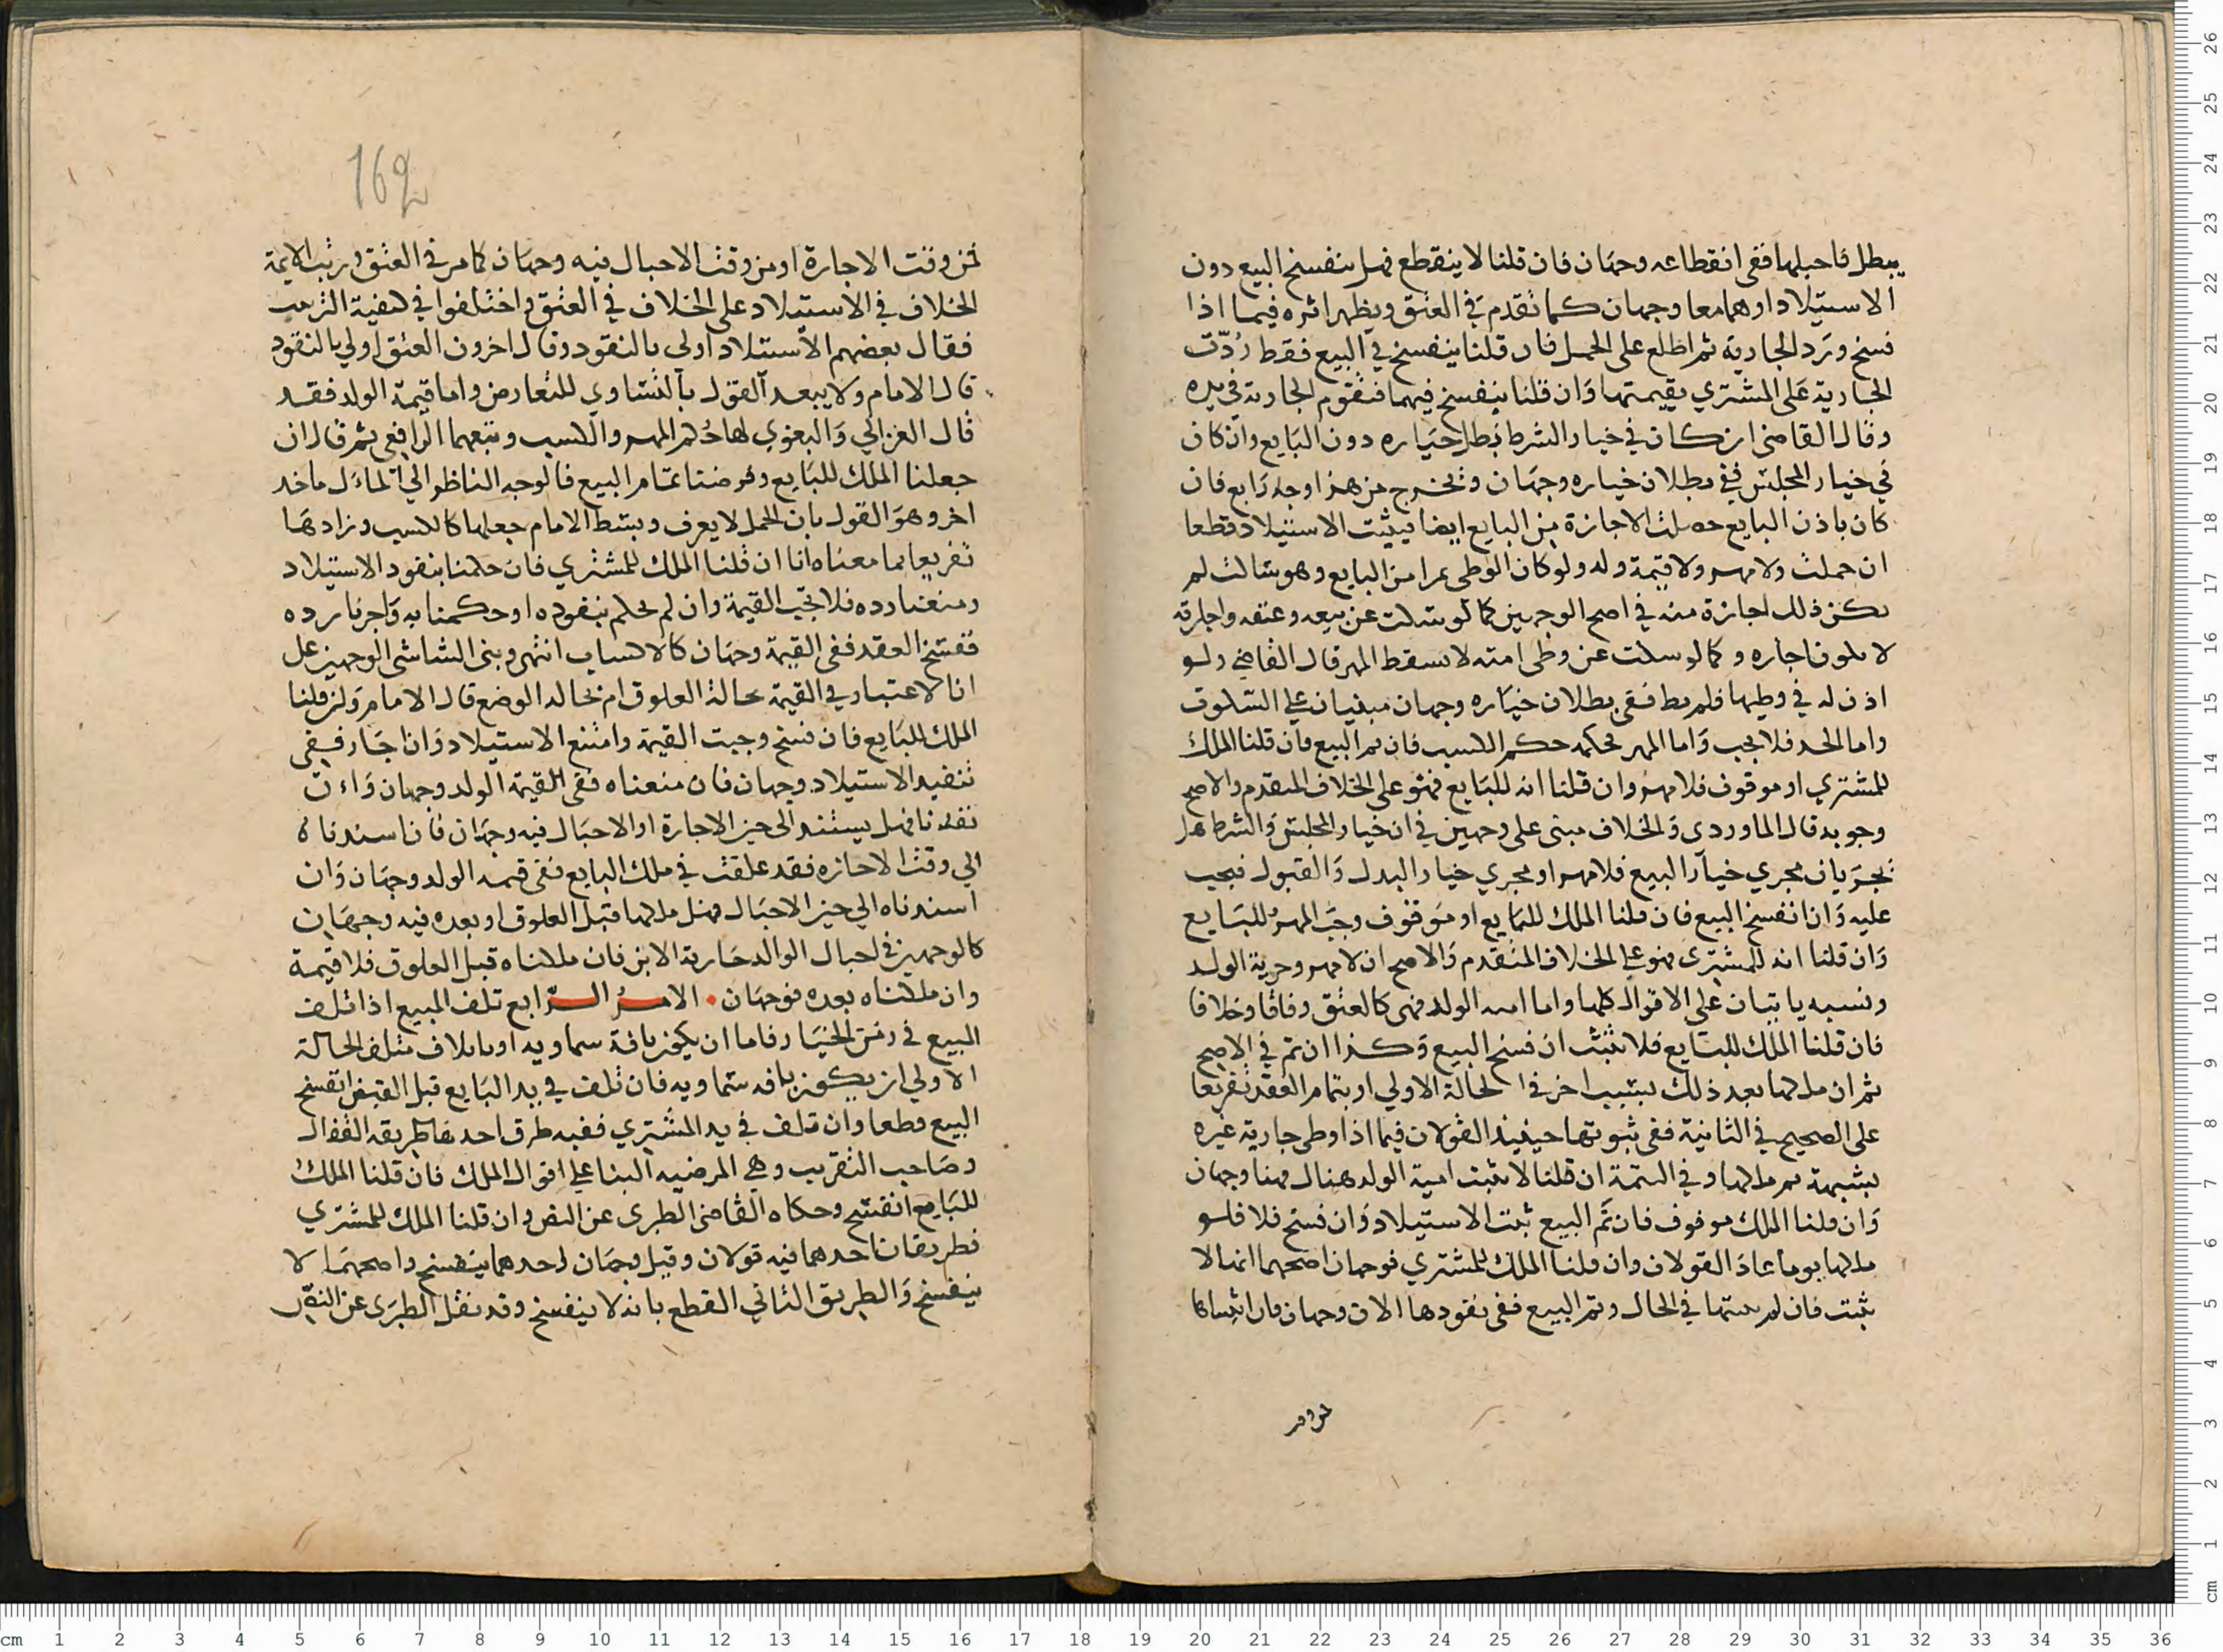 يبطل فاحبلها ففي انقطاعه وجهان فان قلنا لا ينقطع فهل ينفسخ البيع دون
الاستيلاد او هما معا وجهان كما تقدم في العتق ويظهر اثره فيما اذا
فسخ ورد الجارية ثم اطلع على الحمل فان قلنا ينفسخ في البيع فقط ردّت
الجارية على المشتري بقيمتها وان قلنا ينفسخ فيهما فتقوم الجارية في يده
وقال القاضي ان كان في خيار الشرط بطل خياره دون البايع وان كان
في خيار المجلس ففي بطلان خياره وجهان وتخرج من هذا وجه رابع فان
كان باذن البايع حصلت الاجازة من البايع ايضا فيثبت الاستيلاد قطعا
ان حملت ولا مهر ولا قيمة وله ولو كان الوطى بمرا من البايع وهو ساكت لم
يكن ذلك اجازة منه في اصح الوجهين كما لو سكت عن بيعه وعتقه واجارته
لا يكون اجازه وكما لو سكت عن وطى امته لا يسقط المهر قال القاضي ولو
اذن له في وطيها فلم يطا ففي بطلان خياره وجهان مبنيان على السكوت
واما الحد فلا يجب واما المهر فحكمه حكم الكسب فان تم البيع فان قلنا الملك
للمشتري او موقوف فلا مهر وان قلنا انه للبايع فهو على الخلاف المتقدم والاصح
وجوبه قال الماوردي والخلاف مبنى على وجهين في ان خيار المجلس والشرط هل
يجريان مجري خيار البيع فلا مهر او مجري خيار البدل والقبول فيجب
عليه وان انفسخ البيع فان قلنا الملك للبايع او موقوف وجب المهر للبايع
وان قلنا انه للمشتري فهو على الخلاف المتقدم والاصح ان لا مهر وحرية الولد
ونسبه ياتيان على الاقوال كلها واما اميه الولد فهي كالعتق وفاقا وخلافا
فان قلنا الملك للبايع فلا تثبت ان فسخ البيع وكذا ان تم في الاصح
ثم ان ملكها بعد ذلك بسبب اخر في الحالة الاولي او بتمام العقد تفريعا
على الصحيح في الثانية ففي ثبوتها حينيذ القولان فيما اذا وطى جارية غيره
بشبهة ثم ملكها وفي التتمة ان قلنا لا تثبت امية الولد هناك فهنا وجهان
وان قلنا الملك موقوف فان تم البيع ثبت الاستيلاد وان فسخ فلا فلو
ملكها يوما عاد القولان وان قلنا الملك للمشتري فوجهان اصحهما انها لا
تثبت فان لم نثبتها في الحال وتم البيع ففي نفودها الان وجهان فان اثبتناها
162
فمن وقت الاجازة او من وقت الاحبال فيه وجهان كما مر في العتق ورتب الايمة
الخلاف في الاستيلاد على الخلاف في العتق واختلفوا في كيفية الترتيب
فقال بعضهم الاستيلاد اولى بالنفود وقال اخرون العتق اولي بالنفود
قال الامام ولا يبعد القول بالتساوي للتعارض واما قيمة الولد فقد
قال الغزالي والبغوي لها حكم المهر والكسب وتبعهما الرافعي ثم قال ان
جعلنا الملك للبايع وفرضنا تمام البيع فالوجه الناظر الي المآل ماخد
اخر وهو القول بان الحمل لا يعرف وبسط الامام جعلها كالكسب وزادها
تفريعا بما معناه انا ان قلنا الملك للمشتري فان حكمنا بنفود الاستيلاد
ومنعنا رده فلا تجب القيمة وان لم نحكم بنفوده او حكمنا به واجزنا رده
ففسخ العقد ففي القيمة وجهان كالاكساب انتهى وبنى الشاشي الوجهين على
انا لاعتبار في القيمة بحالة العلوق ام بحاله الوضع قال الامام ولين قلنا
الملك للبايع فان فسخ وجبت القيمة وامتنع الاستيلاد وان اجاز ففي
تنفيد الاستيلاد وجهان فان منعناه ففي القيمة الولد وجهان وان
نفدنا فهل يستند الى حين الاجازة او الاحبال فيه وجهان فان اسندناه
الي وقت الاجازه فقد علقت في ملك البايع ففي قيمه الولد وجهان وان
اسندناه الي حين الاحبال فهل ملكها قبل العلوق او بعده فيه وجهان
كالوجهين في احبال الوالد جارية الابن فان ملكناه قبل العلوق فلا قيمة
وان ملكناه بعده فوجهان • الامر الرابع تلف المبيع اذا تلف
المبيع في زمن الخيار فاما ان يكون بافة سماويه او باتلاف متلف الحالة
الاولي ان يكون بافه سماويه فان تلف في يد البايع قبل القبض انفسخ
البيع قطعا وان تلف في يد المشتري ففيه طرق احدها طريقه القفال
وصاحب التقريب وهي المرضيه البنا علي اقوال الملك فان قلنا الملك
للبايع انفسخ وحكاه القاضي الطبري عن النص وان قلنا الملك للمشتري
فطريقان احدهما فيه قولان وقيل وجهان احدهما ينفسخ واصحهما لا
ينفسخ والطريق الثاني القطع بانه لا ينفسخ وقد نقل الطبري عن النص